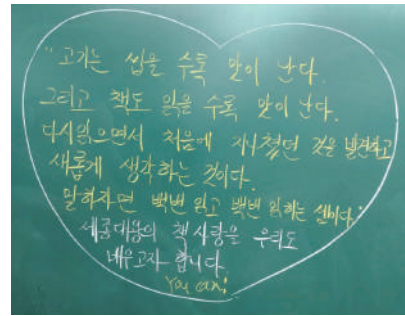 "고기는 씹을 수록 맛이 난다.
그리고 책도 읽을 수록 맛이 난다.
다시읽으면서 처음에 지나쳤던 것을 발견하고
새롭게 생각하는 것이다.
말하자면 백번 읽고 백번 익히는 셈이다."
세종대왕의 책사랑을 우리도
배우고자 합니다.
You can!